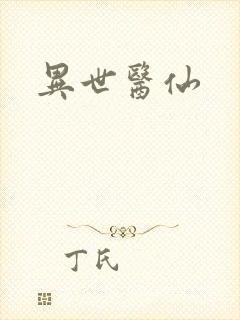 異世醫仙
丁氏